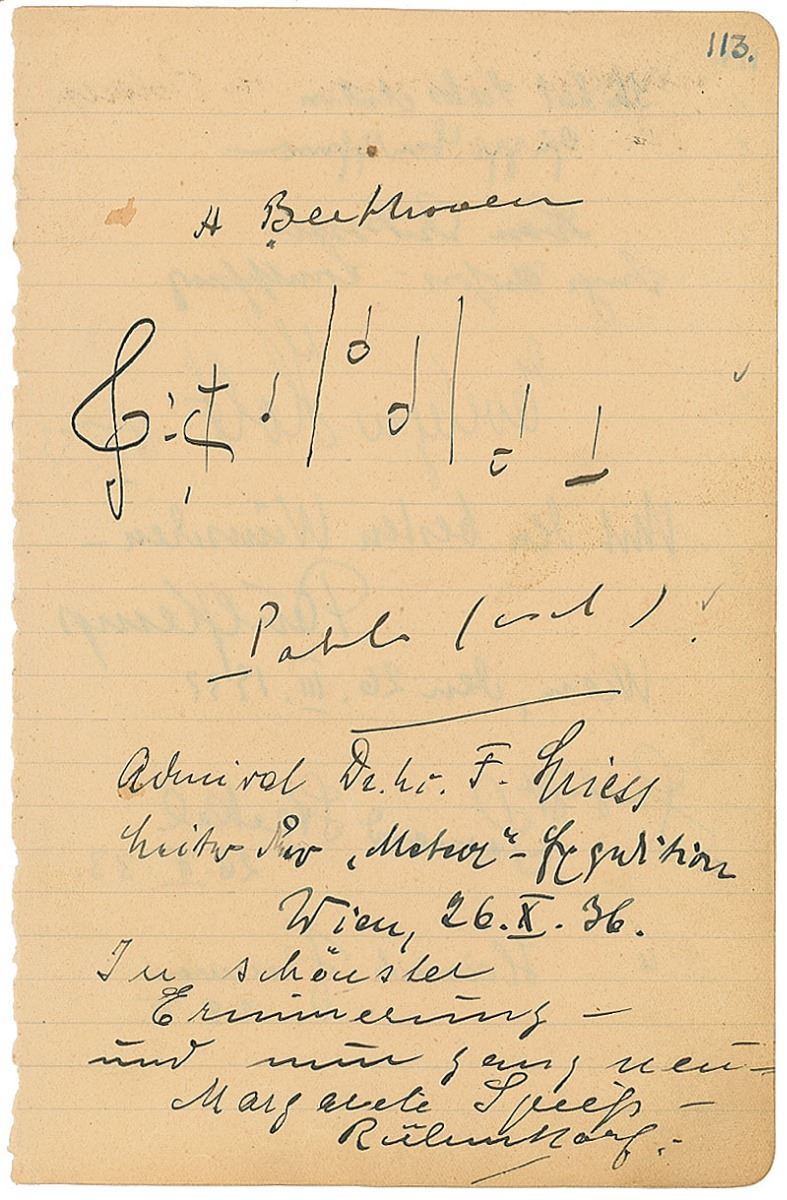 113.
A Beethoven
Pablo
Admiral Dr. h. c. F. Spiess
Leiter der „Meteor“-Expedition
Wien, 26. X. 36.
In schönster
Erinnerung –
und nun ganz neu –
Margarete Spieß –
Rülenkorf.